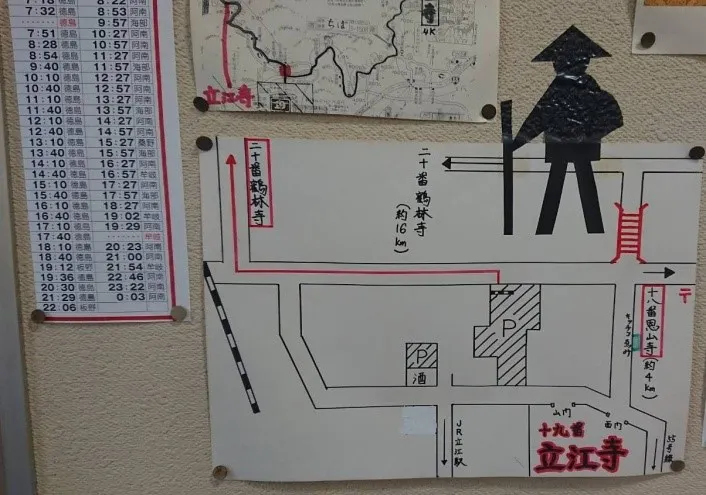 7:32 徳島 8:53 阿南
徳島 9:57 海部
7:51 徳島 10:27 阿南
8:28 徳島 10:57 阿南
8:54 徳島 11:27 阿南
9:40 徳島 11:57 海部
10:10 徳島 12:27 阿南
10:40 徳島 12:57 阿南
11:10 徳島 13:27 阿南
11:40 徳島 13:57 海部
12:10 徳島 14:27 阿南
12:40 徳島 14:57 阿南
13:10 徳島 15:27 桑野
13:40 徳島 15:57 海部
14:10 徳島 16:27 阿南
14:40 徳島 16:57 牟岐
15:10 徳島 17:27 阿南
15:40 徳島 17:57 海部
16:10 徳島 18:27 阿南
16:40 徳島 19:02 牟岐
17:10 徳島 19:29 阿南
17:40 徳島 牟岐
18:10 徳島 20:23 阿南
18:40 徳島 21:00 阿南
19:12 板野 21:54 牟岐
19:36 徳島 22:46 阿南
20:30 徳島 23:22 阿南
21:29 徳島 0:03 阿南
22:06 板野
立江寺
二十番鶴林寺
二十番鶴林寺
(約16km)
〒
十八番恩山寺
(約4km)
P
P
酒
山門
西門
JR立江駅
55号線
十九番
立江寺